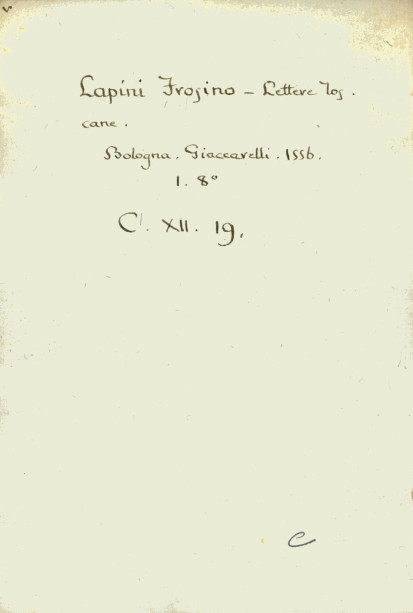 Lapini Frosino - Lettere Tos.
cane.
Bologna. Giaccarelli. 1556.
1. 8º
C. XII. 19.
e